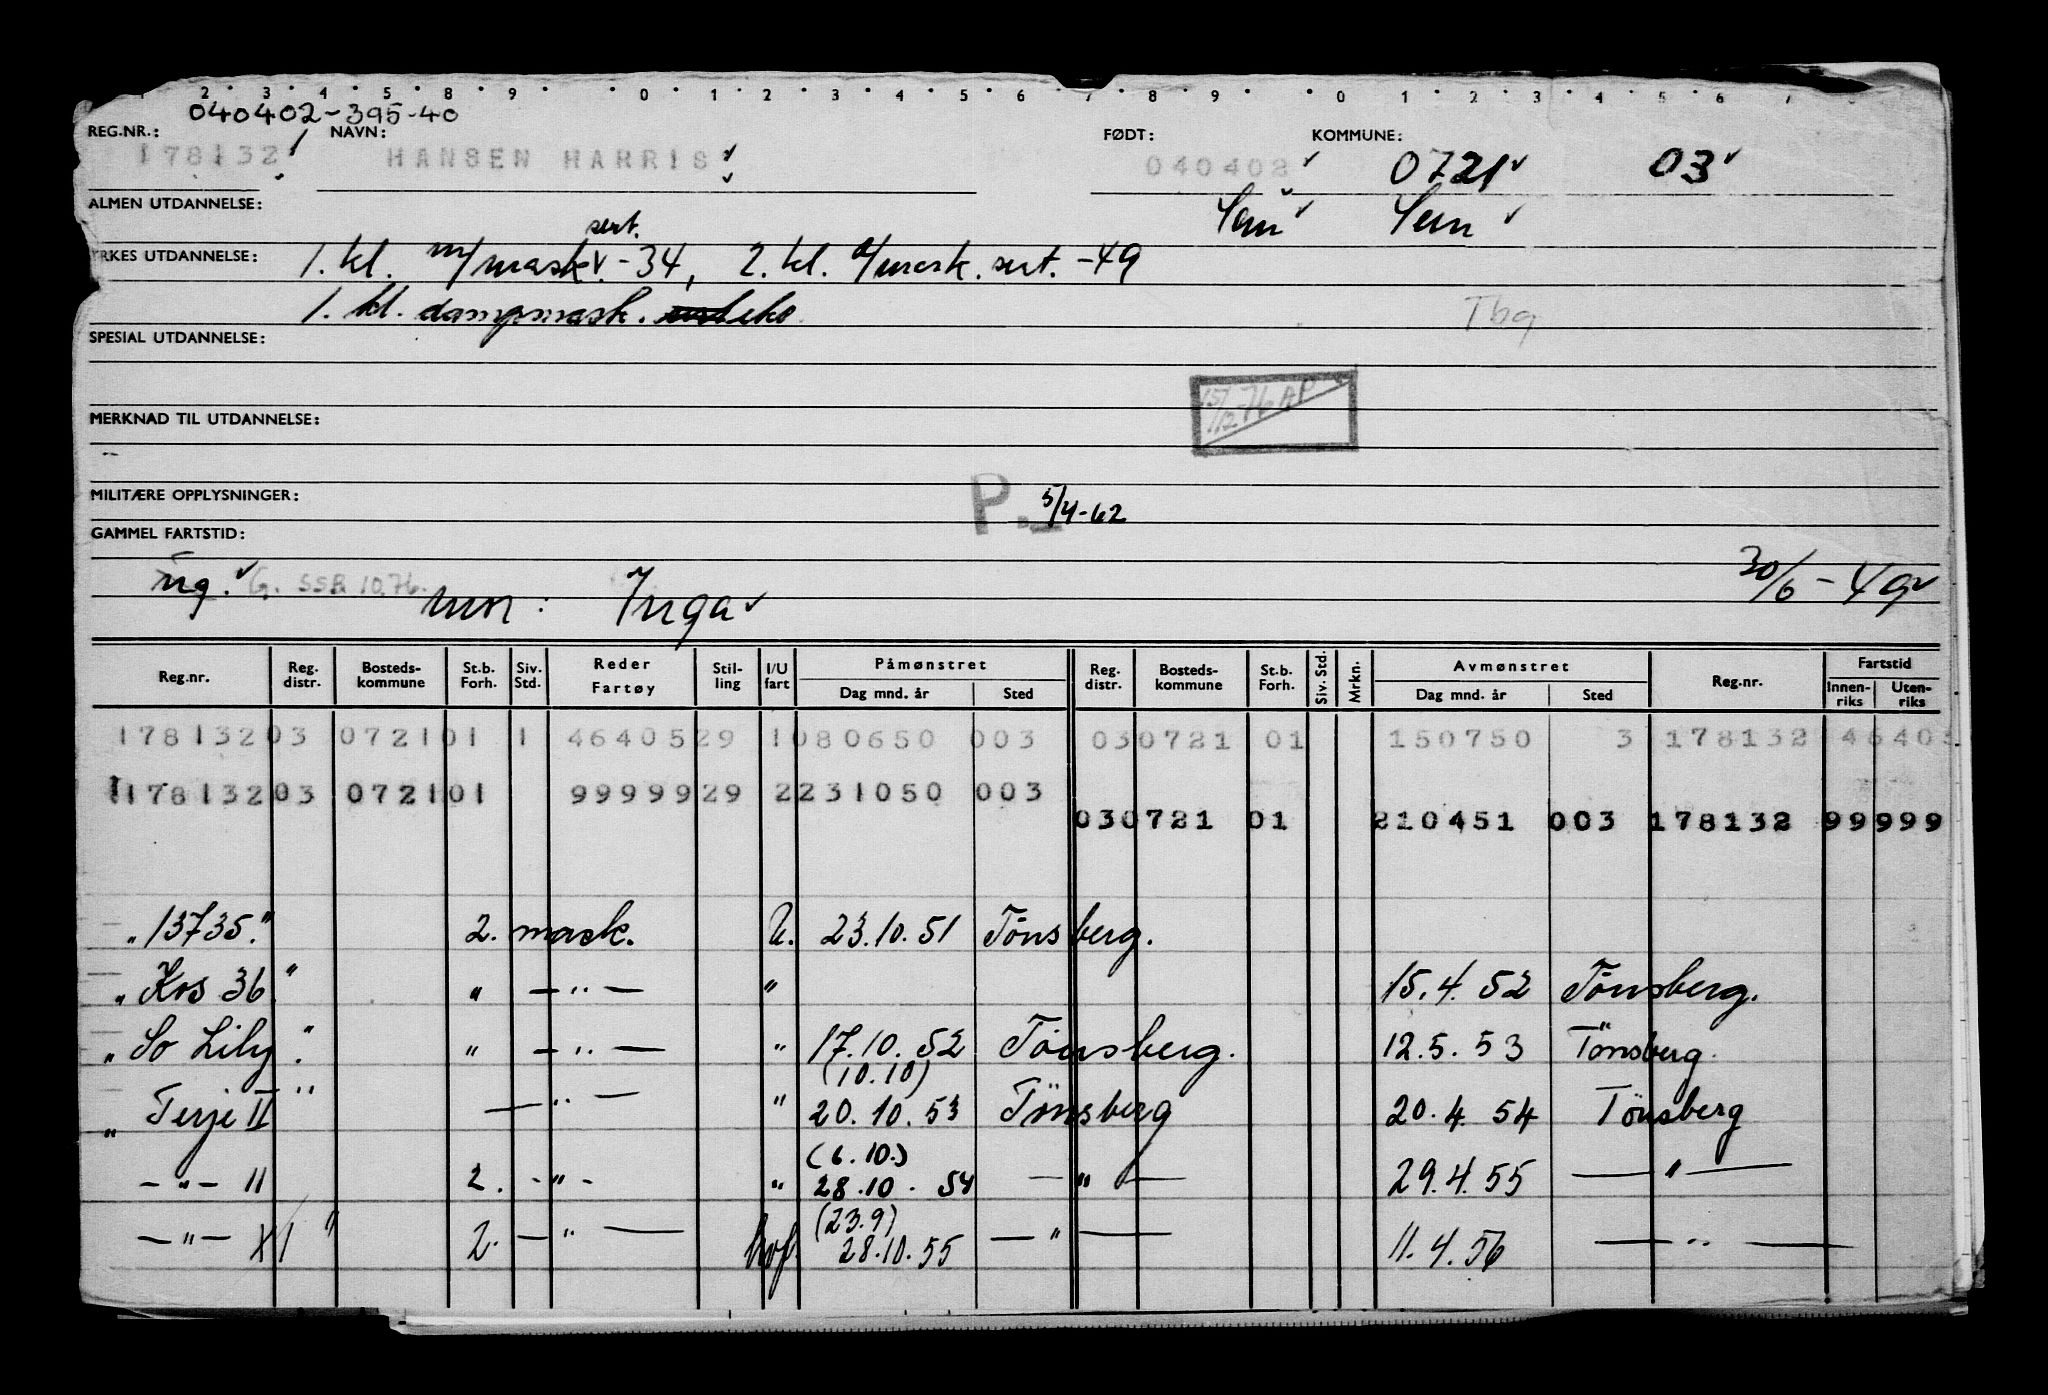 1 2 3 4 5 8 9 0 1 2 3 4 5 6 7 8 9 0 1 2 3 4 5 6 7
040402-395-40
REG.NR.: NAVN: FØDT: KOMMUNE:
178132 HANSEN HARRIS 040402 0721 03
ALMEN UTDANNELSE: Sem Sem
sert.
YRKES UTDANNELSE: 1. kl. m/mask. -34, 2. kl. d/mask. sert. -49
1. kl. dampmask. eks. Tbg
SPESIAL UTDANNELSE:
15/12-76 AP
MERKNAD TIL UTDANNELSE:
MILITÆRE OPPLYSNINGER: P. 5/4-62
GAMMEL FARTSTID:
ug. G. SSB 10.76. mor: Inga 30/6-49
Reg.nr. Reg. distr. Bosteds- kommune St.b. Forh. Siv. Std. Reder Fartøy Stil- ling I/U fart Påmønstret Dag mnd. år Sted Reg. distr. Bosteds- kommune St.b. Forh. Siv. Std. Mrkn. Avmønstret Dag mnd. år Sted Reg.nr. Fartstid Innen- riks Uten- riks
178132 03 0721 01 1 46405 29 1 080650 003 03 0721 01 150750 3 178132 46405
178132 03 0721 01 99999 29 2 231050 003
03 0721 01 210451 003 178132 99999
"13735." 2. mask. U. 23.10.51 Tönsberg.
"Kos 36." " — " — " 15.4.52 Tönsberg.
"So Lily." " — " — " 17.10.52 Tönsberg. 12.5.53 Tönsberg.
(10.10)
"Terje II" — " — " 20.10.53 Tönsberg 20.4.54 Tönsberg
(6.10.)
— " — 11 2. - " - " 28.10.54 — " — 29.4.55 — " —
(23.9)
— " — XI " 2. — " — hvf 28.10.55 — " — 11.4.56 — " —